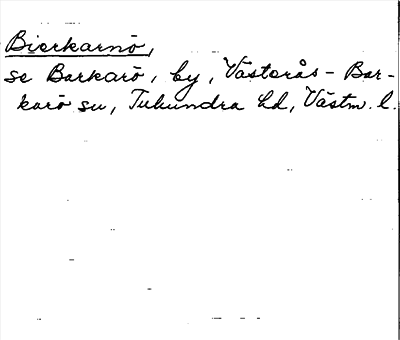 Bierkarnö,
se Barkarö, by, Västerås-Bar-
karö sn, Tuhundra hd, Västm. l.